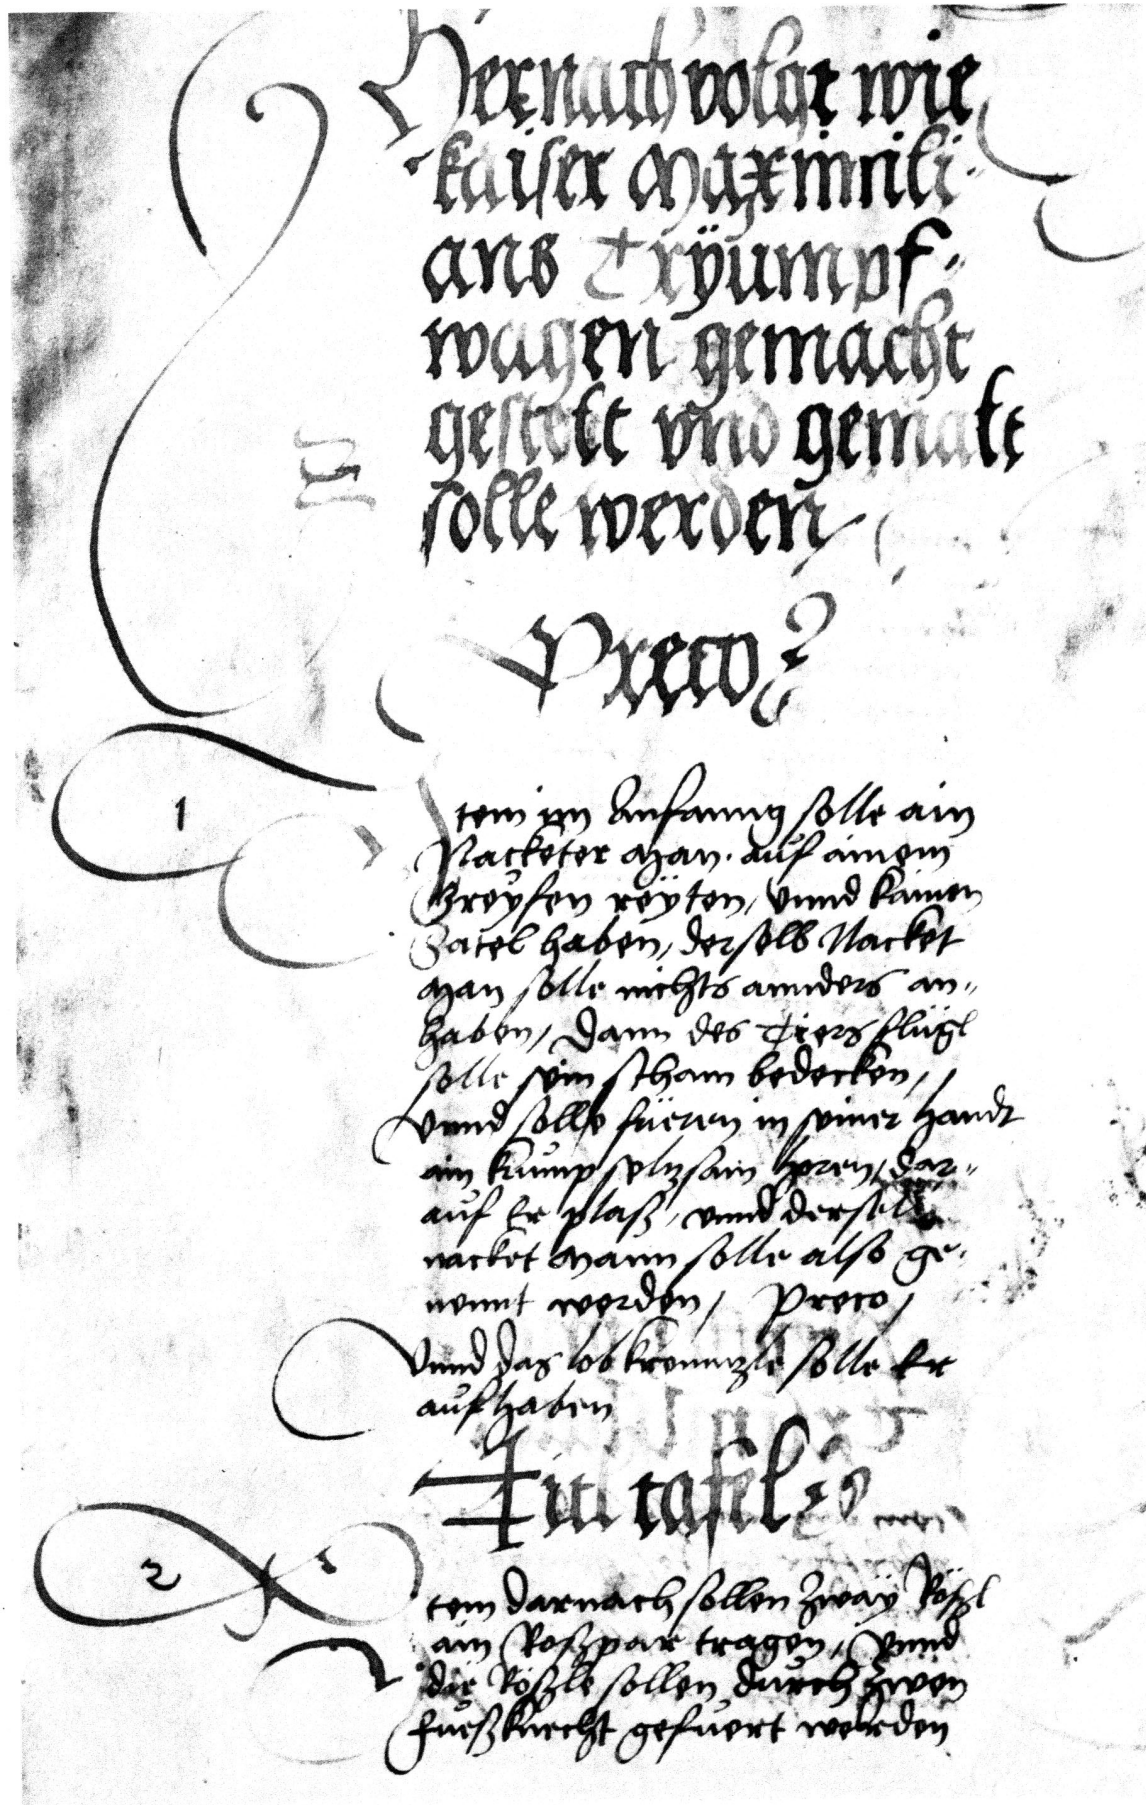 Hernach volgt wie
kaiser Maximili-
ans Tryumpf-
wagen gemacht
gestelt vnd gemalt
solle werden
Preco
1
Item im Anfanng solle ain
Nacketer Man. auf ainem
Greyfen reyten, vnnd kainen
Satel haben, derselb Nacket
Man solle nichts annders an-
haben, dann des Tiers flügl
solle sein scham bedecken,
vnnd solle füeren in seiner handt
ain krump seltzsam horen, dar-
auf Er plasz, vnnd derselb
nacket Mann solle also ge-
nennt werden, Preco,
Vnnd das lobkrenntzle solle Er
aufhaben
Titl tafel
2
Item darnach sollen zway Rößl
ain Roßpar tragen, Vnnd
die Rößle sollen durch zwen
fueßknecht gefuert werden